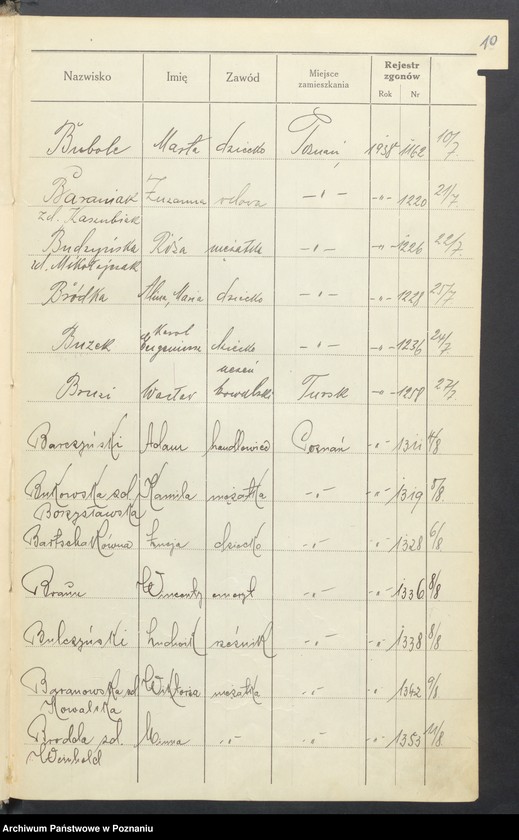 10
Nazwisko Imię Zawód Miejsce zamieszkania Rejestr zgonów
Rok Nr
Bubolc Marta dziecko Poznań 1938 1162 10/7
Baraniak Zuzanna wdowa - " - - " - 1220 21/7
zd. Kaszubiak
Budzyńska Róża mężatka - " - - " - 1226 22/7
zd. Mikołajczak
Bródka Maria dziecko - " - - " - 1228 25/7
Karol
Buzek Eugeniusz dziecko - " - - " - 1236 24/7
uczeń
Wacław kowalski Tursk - " - 1258 27/7
Barczyński Adam handlowiec Poznań - " - 1311 4/8
Bukowska zd. Kamila mężatka - " - - " - 1319 5/8
Borzysławska
Bartschakówna Łucja dziecko - " - - " - 1328 6/8
Braun Wincenty emeryt - " - - " - 1336 8/8
Bulczyński Ludwik rzeźnik - " - - " - 1338 8/8
Baranowska zd. Wiktoria mężatka - " - - " - 1342 9/8
Kowalska
zd. Minna - " - - " - - " - 1353 11/8
Archiwum Państwowe w Poznaniu